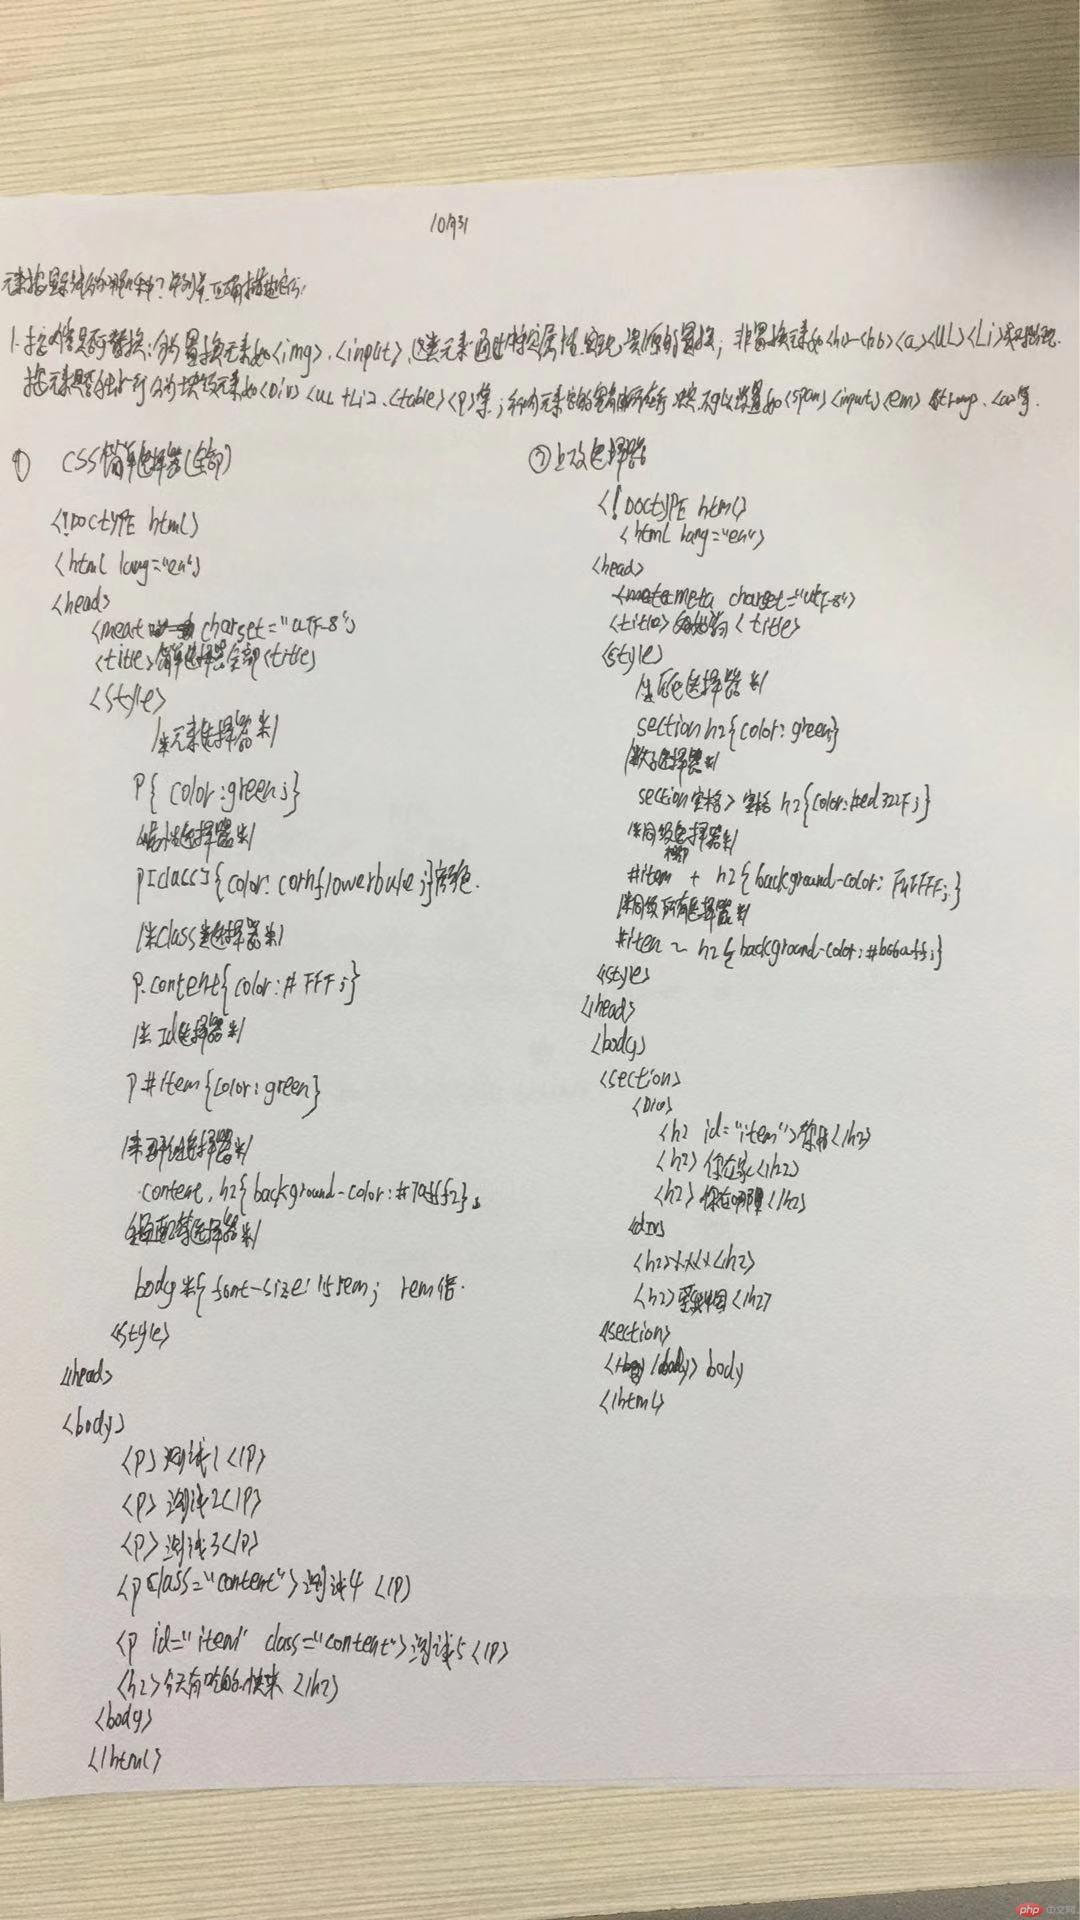 10月31
1.按内容是否可替换:分为置换元素如<img>、<input>,这类元素通过特定属性实现资源的置换;非置换元素如<h1-<h6><a><UL><Li>
按元素是否独占行分为块级元素如<Div><UL+Li>、<table><P>等;行内元素如<span><input><em>strong、<a>等.
① CSS简单选择器(全部)
<!DOCTYPE html>
<html lang="en">
<head>
<meat charset="UTF-8">
<title>简单选择器全部<title>
<style>
/*元素选择器*/
P{ color:green;}
属性选择器*/
P[class]{color: cornflowerbule;}
/*class选择器*/
P.content{color:#FFF;}
/*Id选择器*/
P#item{color:green}
/*群组选择器*/
.content,h2{background-color:#7afff2};
选择器*/
body *{font-size: 1.5rem; rem倍.
<style>
</head>
<body>
<P>测试1</P>
<P>测试2</P>
<P>测试3</P>
<P class="content">测试4 </P>
<P id="item" class="content">测试5</P>
<h2>今天有吃的,快来 </h2>
<body>
</html>
② 上下文选择器
<!DOCTYPE html>
<html lang="en">
<head>
meta charset="UTF-8">
<title> <title>
<style>
/*后代选择器*/
section h2{color:green;}
/*父子选择器*/
section空格>空格 h2{color:#ed322F;}
/*同级相邻选择器*/
#item + h2{background-color:
/*同级所有选择器*/
#iten ~ h2{background-color:#b6baff;}
<style>
</head>
<body>
<section>
<Div>
<h2 id="item">你好</h2>
<h2>你在家</h2>
<h2>你在哪里</h2>
<div>
<h2>xxxx<h2>
<h2> </h2>
<section>
body
</html>
php 中文网